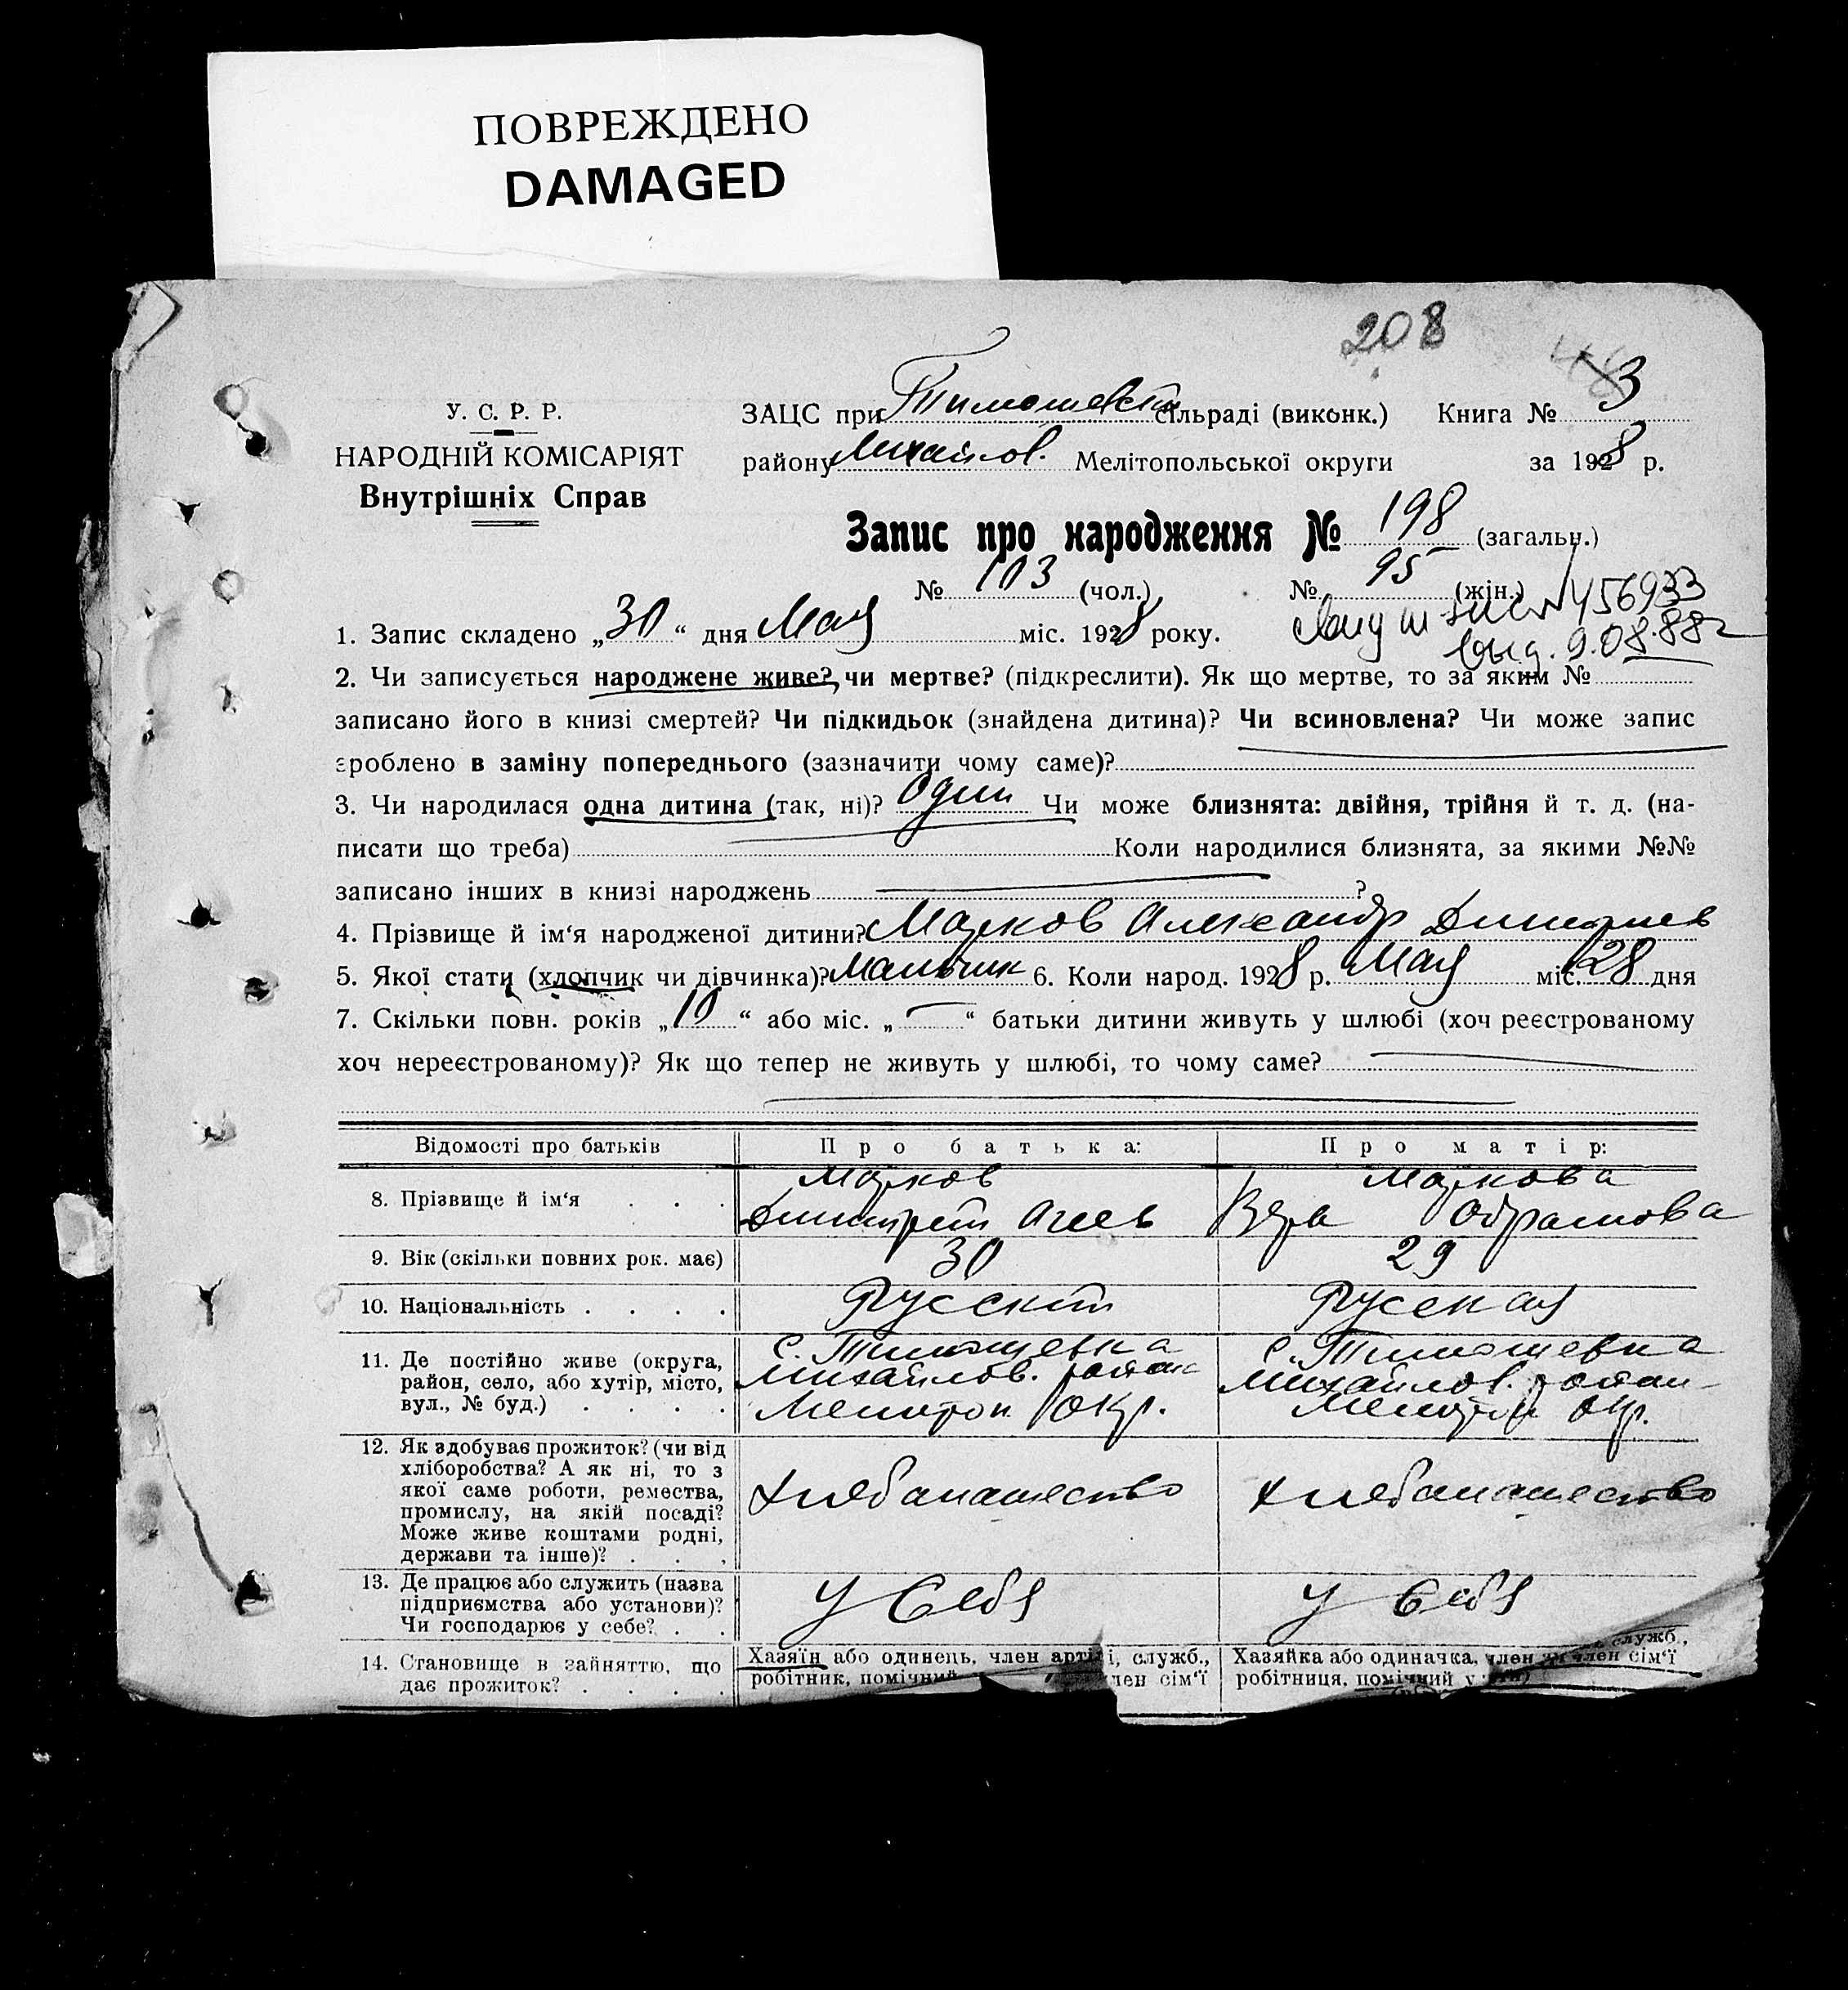 ПОВРЕЖДЕНО
DAMAGED
208
У. С. Р. Р.
НАРОДНІЙ КОМІСАРІЯТ
Внутрішніх Справ
ЗАЦС при Тимошевск сільраді (виконк.) Книга № 3
району Михайлов. Мелітопольської округи за 1928 р.
Запис про народження № 198 (загальн.)
№ 103 (чол.) № 95 (жін.)
456933
выд. 9.08.88г
1. Запис складено „30“ дня Мая міс. 1928 року.
2. Чи записується народжене живе? чи мертве? (підкреслити). Як що мертве, то за яким №
записано його в книзі смертей? Чи підкидьок (знайдена дитина)? Чи всиновлена? Чи може запис
зроблено в заміну попереднього (зазначити чому саме)?
3. Чи народилася одна дитина (так, ні)? Один Чи може близнята: двійня, трійня й т. д. (на-
писати що треба) Коли народилися близнята, за якими №№
записано інших в книзі народжень ?
4. Прізвище й ім‘я народженої дитини? Марков Александр Димитриев
5. Якої стати (хлопчик чи дівчинка)? Мальчик 6. Коли народ. 1928 р. Мая міс. 28 дня
7. Скільки повн. років „10“ або міс. „—“ батьки дитини живуть у шлюбі (хоч реєстрованому
хоч нереєстрованому)? Як що тепер не живуть у шлюбі, то чому саме?
Відомості про батьків Про батька: Про матір:
8. Прізвище й ім‘я . . . Марков Димитрий Агеев Маркова Вера Абрамова
9. Вік (скільки повних рок. має) 30 29
10. Національність . . . . Русский Русская
11. Де постійно живе (округа,
район, село, або хутір, місто,
вул., № буд.) . . . .
с. Тимошевка с. Тимошевка
Михайлов. район Михайлов. район
Мелитоп Окр. Мелитоп Окр.
12. Як здобуває прожиток? (чи від
хліборобства? А як ні, то з
якої саме роботи, ремества,
промислу, на якій посаді?
Може живе коштами родні,
держави та інше)? . . .
Хлебопашество Хлебопашество
13. Де працює або служить (назва
підприємства або установи)?
Чи господарює у себе? . .
У Себя У Себя
14. Становище в зайняттю, що
дає прожиток? . . . .
Хазяїн або одинець, член артілі, служб.,
робітник, помічний член сім‘ї
Хазяйка або одиначка, член служб.,
робітниця, помічний член сім‘ї